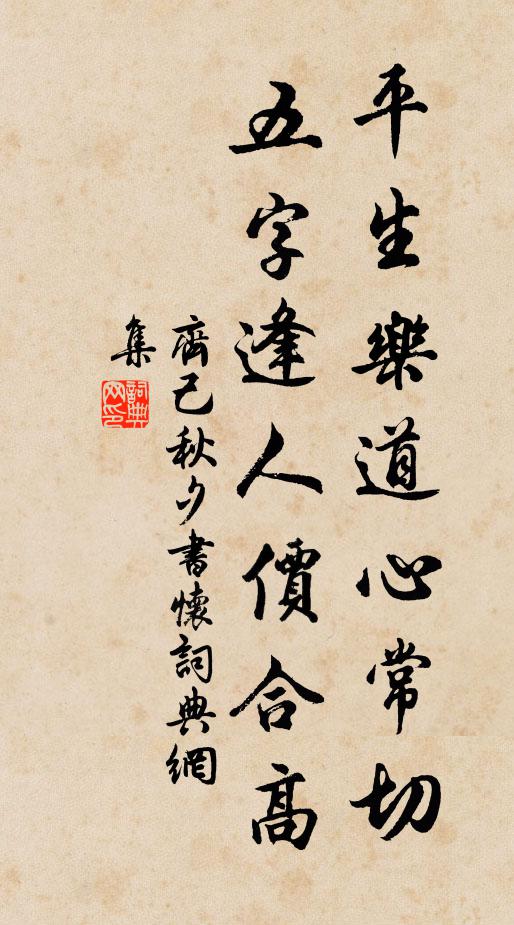 平生樂道心常切
五字逢人價合高
齊己秋夕書懷詞典網
集
詞典
网印